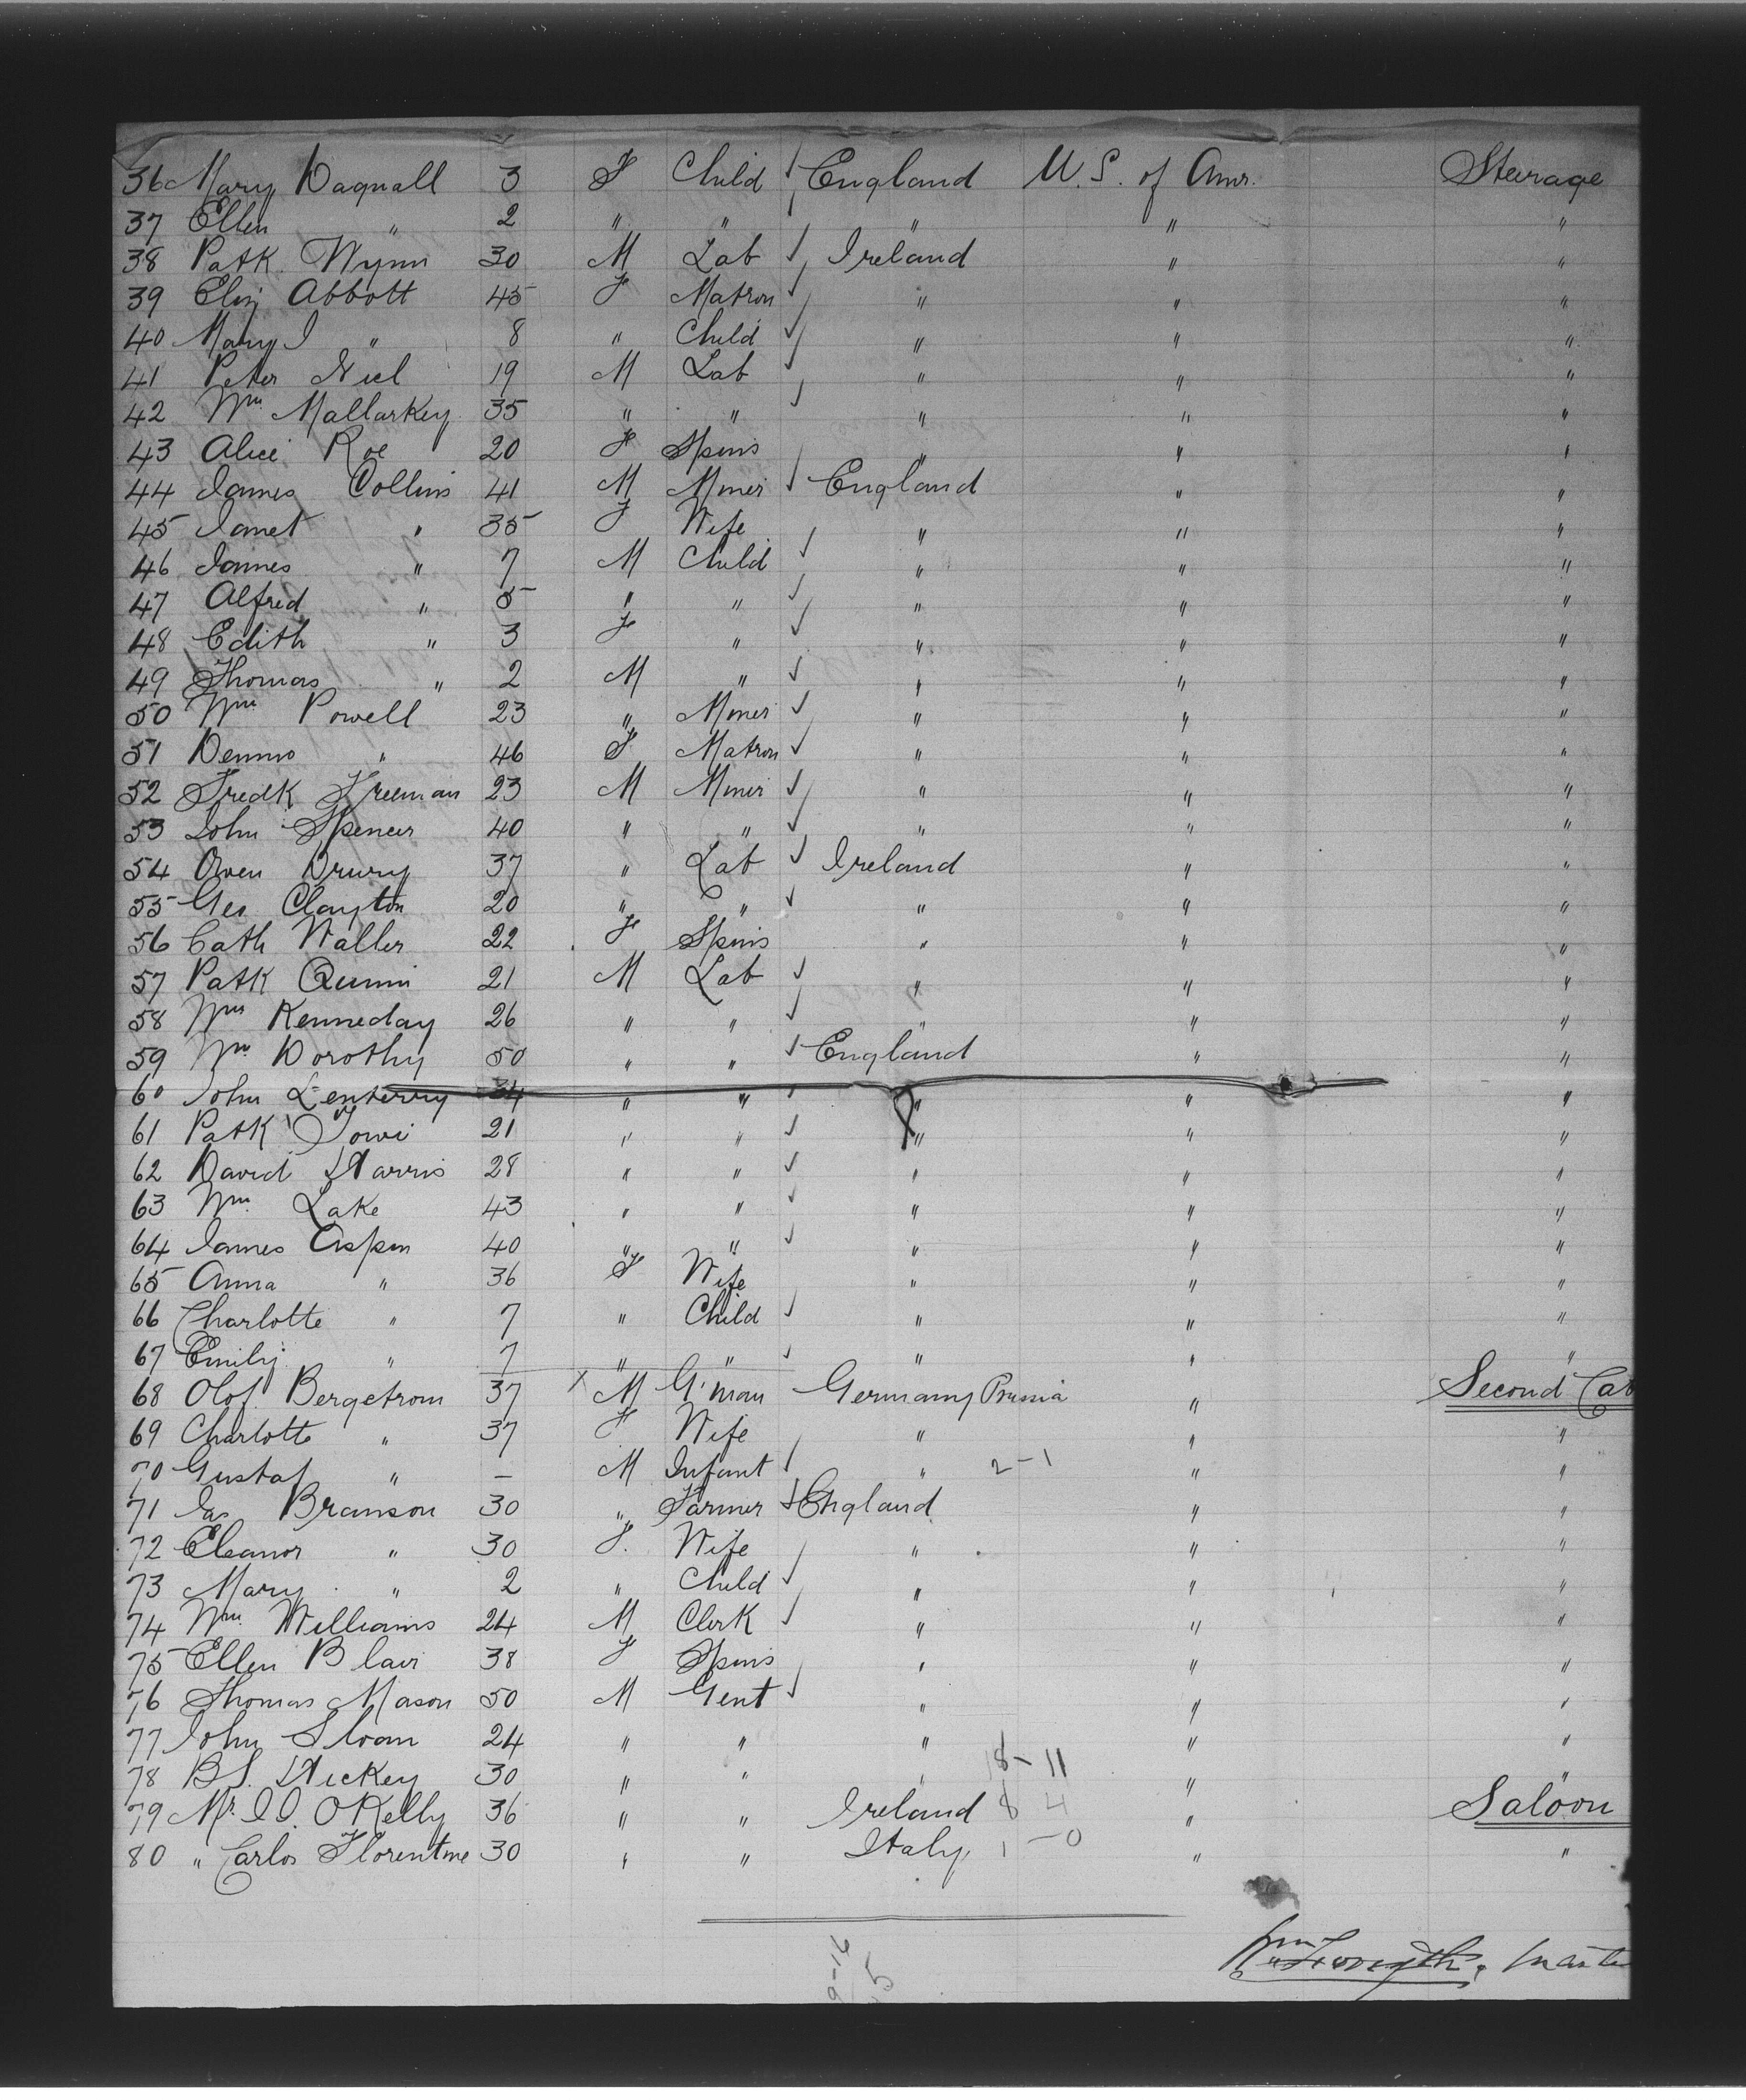 36 Mary Dagnall 3 F Child England U.S. of Amr. Steerage
37 Ellen " 2 " " " " "
38 Patk Wynn 30 M Lab Ireland " "
39 Eliz Abbott 45 F Matron " " "
40 Mary J " 8 " Child " " "
41 Peter Niel 19 M Lab " " "
42 Wm Mallarkey 35 " " " " "
43 Alice Roe 20 F Spins " " "
44 James Collins 41 M Miner England " "
45 Janet " 35 F Wife " " "
46 James " 7 M Child " " "
47 Alfred " 5 " " " " "
48 Edith " 3 F " " " "
49 Thomas " 2 M " " " "
50 Wm Powell 23 " Miner " " "
51 " 46 F Matron " " "
52 Fredk Freeman 23 M Miner " " "
53 John Spencer 40 " " " " "
54 Owen Drury 37 " Lab Ireland " "
55 Geo Clayton 20 " " " " "
56 Cath Waller 22 F Spins " " "
57 Patk Quinn 21 M Lab " " "
58 Wm Kenneday 26 " " " " "
59 Wm Dorothy 50 " " England " "
60 John 34 " " " " "
61 Patk 21 " " " " "
62 David Harris 28 " " " " "
63 Wm Lake 43 " " " " "
64 James Aspin 40 " " " " "
65 Anna " 36 F Wife " " "
66 Charlotte " 7 " Child " " "
67 Emily " 7 " " " " "
68 Olof Bergstrom 37 X M G'man Germany Prussia " Second Cab
69 Charlotte " 37 F Wife " " "
70 Gustaf " – M Infant " 2-1 " "
71 Jas Branson 30 " Farmer England " "
72 Eleanor " 30 F. Wife " " "
73 Mary " 2 " Child " " "
74 Wm Williams 24 M Clerk " " "
75 Ellen Blair 38 F Spins " " "
76 Thomas Mason 50 M Gent " " "
77 John Sloan 24 " " " " "
78 B.S. Hickey 30 " " " 18-11 " "
79 Mr. J.J. O'Kelly 36 " " Ireland 8 4 " Saloon
80 " Carlos Florentine 30 " " Italy 1-0 " "
Wm Forsyth, Maste